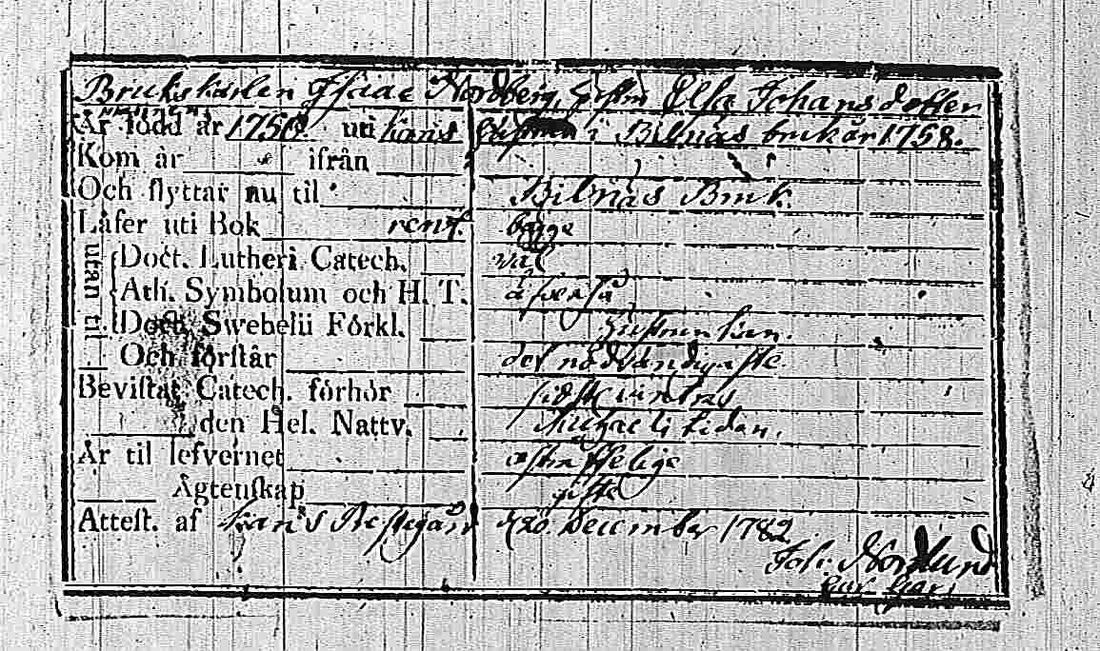 Brukskarlen Isaac Nordberg, hustru Elsa Johansdotter
Är född år 1756 uti hans hustru i Bilnäs bruk år 1758.
Kom år ifrån
Och flyttar nu til Bilnäs Bruk.
Låſer uti Bok rent. begge
utan til
Doct. Lutheri Catech. väl
Ath. Symbolum och H. T. åſvenſå
Doct. Swebelii Förkl. Huſtrun kan.
Och förſtår det nödvändigaſte.
Beviſtat Catech. förhör ſidſte vintras
den Hel. Nattv. Michaeli tiden.
Är til lefvernet oſtraffelige
Ägtenskap gifte
Atteſt. af Preſtegård d. 20. December 1782
Joh. Nordlund